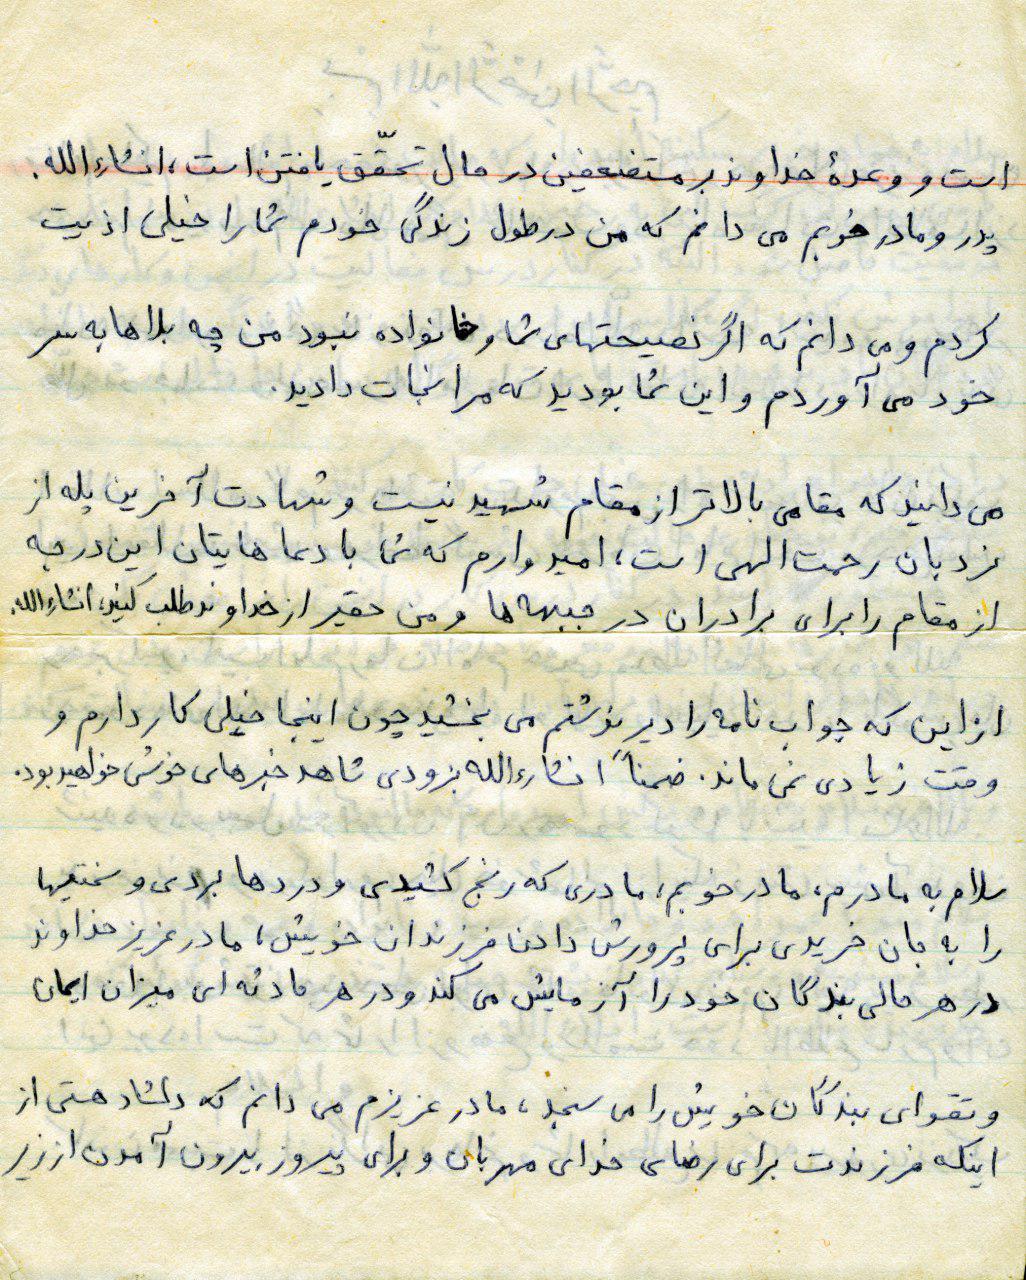 است و وعدهٔ خداوند بر مستضعفین در حال تحقّق یافتن است، انشاءالله.
پدر و مادر خوبم می دانم که من در طول زندگی خودم شما را خیلی اذیت
کردم و می دانم که اگر نصیحتهای شما و خانواده نبود من چه بلاها به سر
خود می آوردم و این شما بودید که مرا نجات دادید.
می دانید که مقامی بالاتر از مقام شهید نیست و شهادت آخرین پله از
نردبان رحمت الهی است، امیدوارم که شما با دعاهایتان این درجه
از مقام را برای برادران در جبهه ها و من حقیر از خداوند طلب کنید، انشاءالله.
از این که جواب نامه را دیر نوشتم می بخشید چون اینجا خیلی کار دارم و
وقت زیادی نمی ماند. ضمناً انشاءالله بزودی شاهد خبرهای خوشی خواهید بود.
سلام به مادرم، مادر خوبم، مادری که رنج کشیدی و دردها بردی و سختیها
را به جان خریدی برای پرورش دادن فرزندان خویش، مادر عزیز خداوند
در هر حالی بندگان خود را آزمایش می کند و در هر حادثه ای میزان ایمان
و تقوای بندگان خویش را می سنجد، مادر عزیزم می دانم که دلشاد هستی از
اینکه فرزندت برای رضای خدای مهربان و برای پیروز بیرون آمدن از زیر